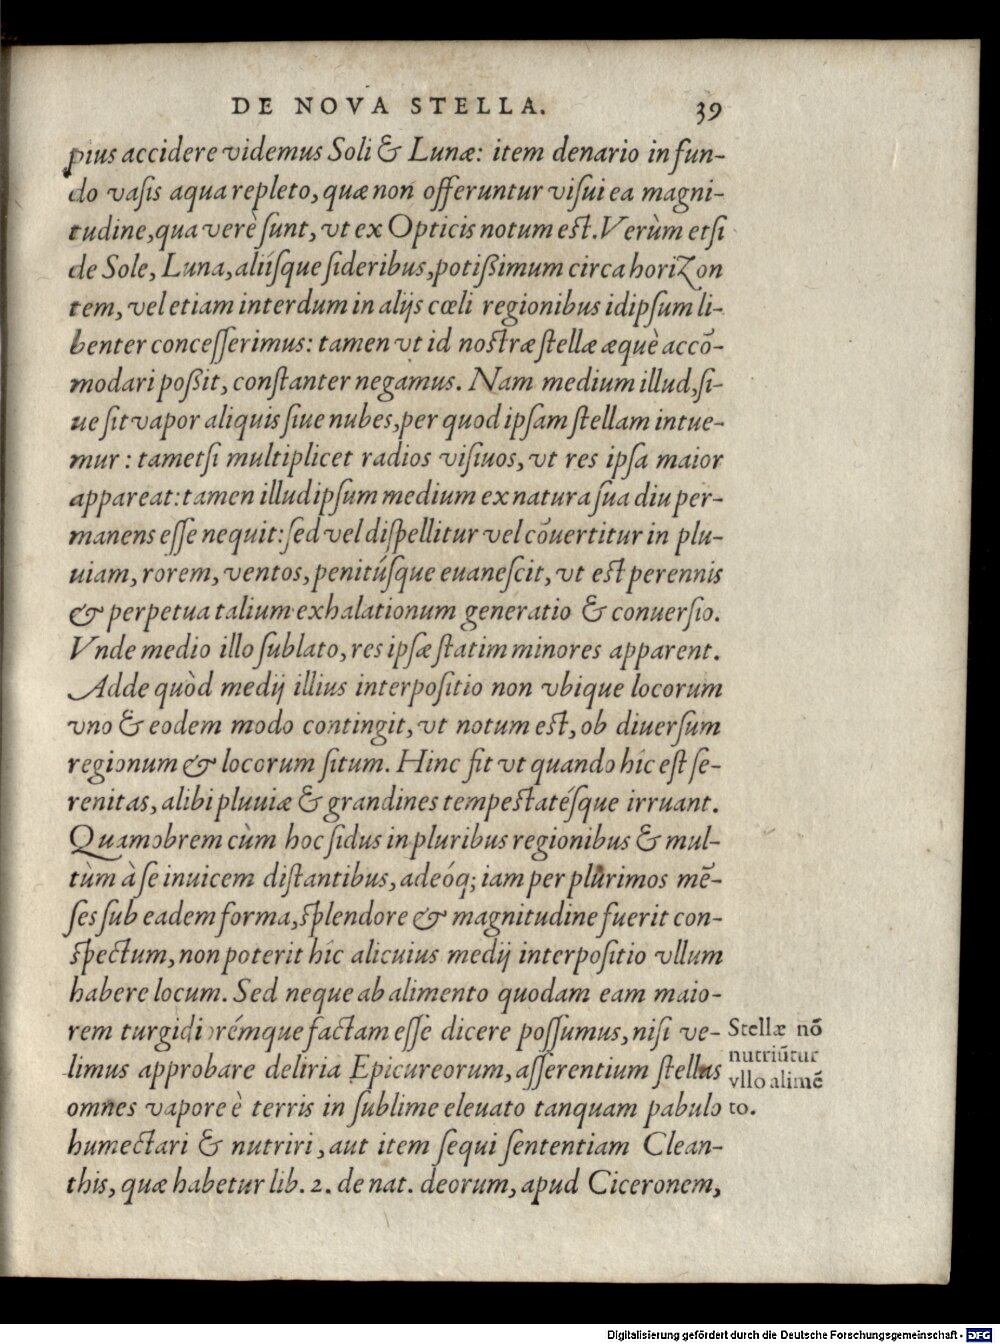 DE NOVA STELLA. 39
pius accidere videmus Soli & Lunæ: item denario in fun-
do vaſis aqua repleto, quæ non offeruntur viſui ea magni-
tudine, qua verè ſunt, vt ex Opticis notum eſt. Verùm etſi
de Sole, Luna, aliíſque ſideribus, potißimum circa horizon
tem, vel etiam interdum in alijs cœli regionibus id ipſum li-
benter conceſſerimus: tamen vt id noſtræ ſtellæ æquè accõ-
modari poßit, conſtanter negamus. Nam medium illud, ſi-
ue ſit vapor aliquis ſiue nubes, per quod ipſam ſtellam intue-
mur: tametſi multiplicet radios viſiuos, vt res ipſa maior
appareat: tamen illud ipſum medium ex natura ſua diu per-
manens eſſe nequit: ſed vel diſpellitur vel cõuertitur in plu-
uiam, rorem, ventos, penitúſque euaneſcit, vt eſt perennis
& perpetua talium exhalationum generatio & conuerſio.
Vnde medio illo ſublato, res ipſæ ſtatim minores apparent.
Adde quòd medij illius interpoſitio non vbique locorum
vno & eodem modo contingit, vt notum eſt, ob diuerſum
regionum & locorum ſitum. Hinc fit vt quando hîc eſt ſe-
renitas, alibi pluuiæ & grandines tempeſtatéſque irruant.
Quamobrem cùm hoc ſidus in pluribus regionibus & mul-
tùm à ſe inuicem diſtantibus, adeóq; iam per plurimos mẽ-
ſes ſub eadem forma, ſplendore & magnitudine fuerit con-
ſpectum, non poterit hîc alicuius medij interpoſitio vllum
habere locum. Sed neque ab alimento quodam eam maio-
rem turgidiorémque factam eſſe dicere poſſumus, niſi ve-
limus approbare deliria Epicureorum, aſſerentium ſtellas
omnes vapore è terris in ſublime eleuato tanquam pabulo
humectari & nutriri, aut item ſequi ſententiam Clean-
this, quæ habetur lib. 2. de nat. deorum, apud Ciceronem,
Stellæ nõ
nutriũtur
vllo alimẽ
to.
Digitalisierung gefördert durch die Deutsche Forschungsgemeinschaft - DFG